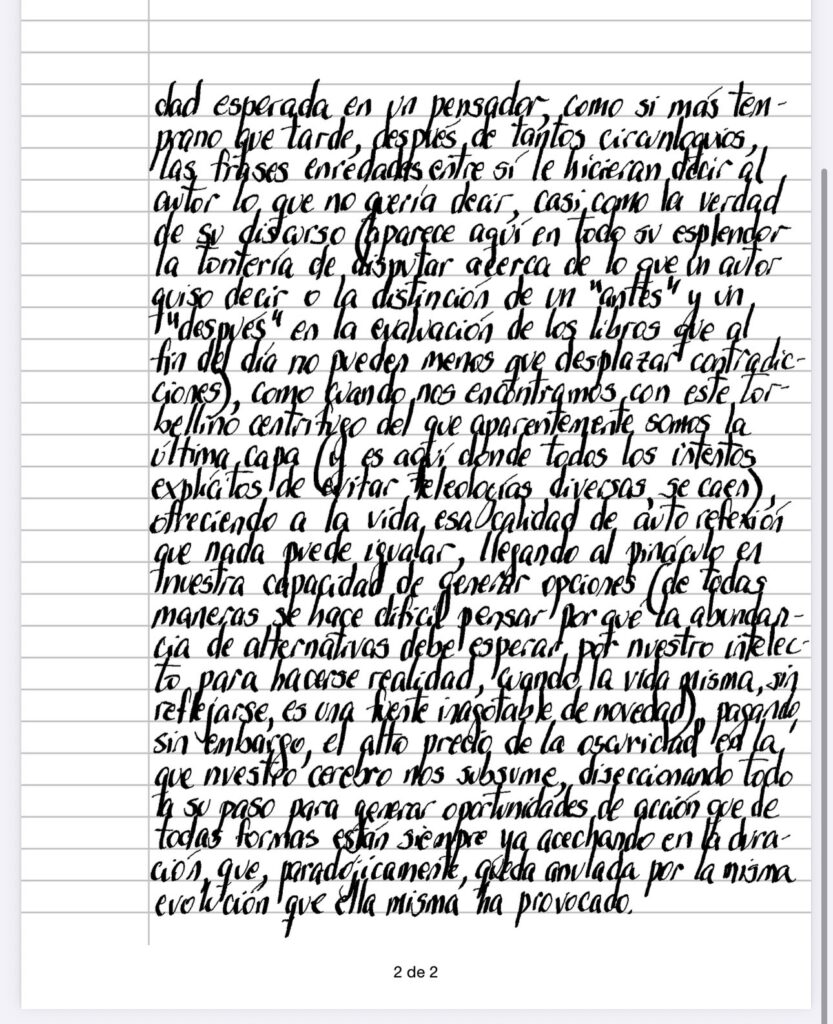 dad esperada en un pensador, como si más tem-
prano que tarde, después de tantos circunloquios,
las frases enredadas entre sí le hicieran decir al
autor lo que no quería decir, casi como la verdad
de su discurso (aparece aquí en todo su esplendor
la tontería de disputar acerca de lo que un autor
quiso decir o la distinción de un "antes" y un
"después" en la evaluación de los libros que al
fin del día no pueden menos que desplazar contradic-
ciones), como cuando nos encontramos con este tor-
bellino centrífugo del que aparentemente somos la
última capa (y es aquí donde todos los intentos
explícitos de evitar teleologías diversas se caen),
ofreciendo a la vida esa calidad de auto refexión
que nada puede igualar, llegando al pináculo en
nuestra capacidad de generar opciones (de todas
maneras se hace difícil pensar por qué la abundan-
cia de alternativas debe esperar por nuestro intelec-
to para hacerse realidad, cuando la vida misma, sin
reflejarse, es una fuente inagotable de novedad), pagando,
sin embargo, el alto precio de la oscuridad en la
que nuestro cerebro nos subsume, diseccionando todo
a su paso para generar oportunidades de acción que de
todas formas están siempre ya acechando en la dura-
ción, que, paradójicamente, queda anulada por la misma
evolución que ella misma ha provocado.
2 de 2